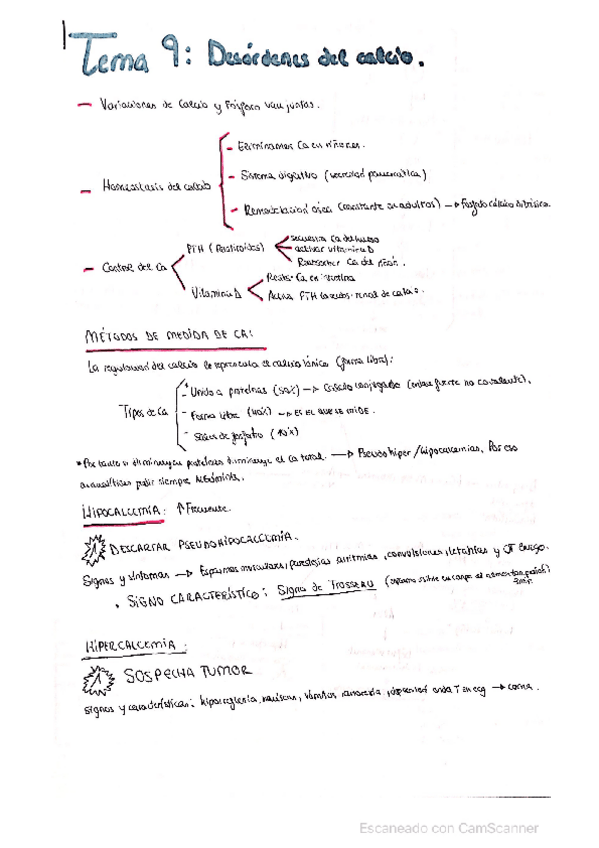 Tema 9: Desórdenes del calcio.
- Variaciones de calcio y fósforo van juntas.
- Homeostasis del calcio
- Eliminamos Ca en riñones.
- Sistema digestivo (secreción pancreática)
- Remodelación ósea (constante en adultos) →
- Control del Ca
PTH (Paratiroides)
secuestra Ca del hueso
activar vitamina D
Reabsorber Ca del riñón.
Vitamina D
Reabs. Ca en intestina
Activa PTH
MÉTODOS DE MEDIDA DE CA:
La regulación del calcio la representa el calcio iónico (forma libre):
Tipos de Ca
- Unido a proteínas (50%) → Calcio conjugado (enlace fuerte no covalente).
- Forma libre (40%) → ES EL QUE SE MIDE.
- Sales de fosfato (10%)
* Por tanto si disminuyen proteínas disminuye el Ca total. → Pseudo hiper/hipocalcemias. Por eso
pedir siempre Albúmina.
HIPOCALCEMIA: ↑ Frecuente.
DESCARTAR PSEUDOHIPOCALCEMIA.
Signos y síntomas → Espasmos musculares, parestesias arritmias, convulsiones, letables y QT largo.
. SIGNO CARACTERÍSTICO: Signo de Trosseau
HIPERCALCEMIA:
SOSPECHA TUMOR
signos y características: náuseas, vómitos, anorexia, depresión onda T en ecg → coma.
Escaneado con CamScanner